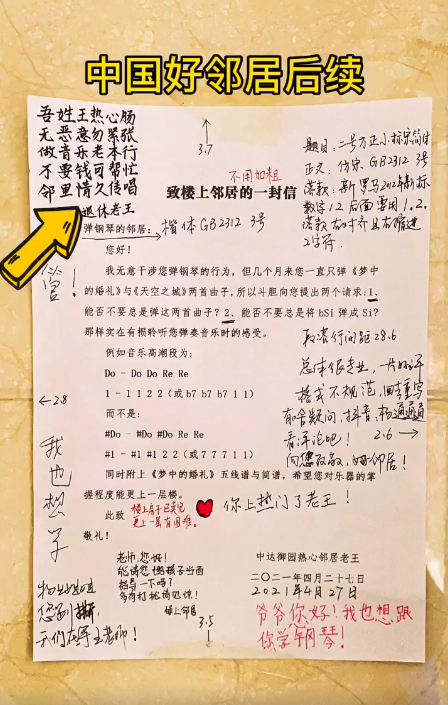 中国好邻居后续
吾姓王热心肠
无恶意勿紧张
做音乐老本行
不要钱可帮忙
邻里情久传唱
退休老王
3.7
不用加粗
题目：二号方正小标宋简体
正文：仿宋GB2312 3号
数字1.2后面要用1.2.
2字符.
致楼上邻居的一封信
弹钢琴的邻居：
楷体GB2312 3号
您好！
我无意干涉您弹钢琴的行为，但几个月来您一直只弹《梦中
的婚礼》与《天空之城》两首曲子，所以斗胆向您提出两个请求：1、
能否不要总是弹这两首曲子？2、能否不要总是将bSi弹成Si？
那样实在有损聆听您弹奏音乐时的感受。
例如音乐高潮段为：
Do - Do Do Re Re
1 - 1 1 2 2（或 b7 b7 b7 1 1）
而不是：
#Do - #Do #Do Re Re
#1 - #1 #1 2 2（或 7 7 7 1 1）
同时附上《梦中的婚礼》五线谱与简谱，希望您对乐器的掌
握程度能更上一层楼。
此致
敬礼！
行间距28.6
总体很专业，一片好评
格式不规范，回去重写
有啥疑问，抖音
看评论吧！
2.6
好邻居！
2.8
我也想学
你上热门了老王！
老师，您好！
指导一下吗？
楼上邻居
3.5
中达御园热心邻居老王
二〇二一年四月二十七日
2021年4月27日
爷爷你好！我也想跟
你学钢琴！